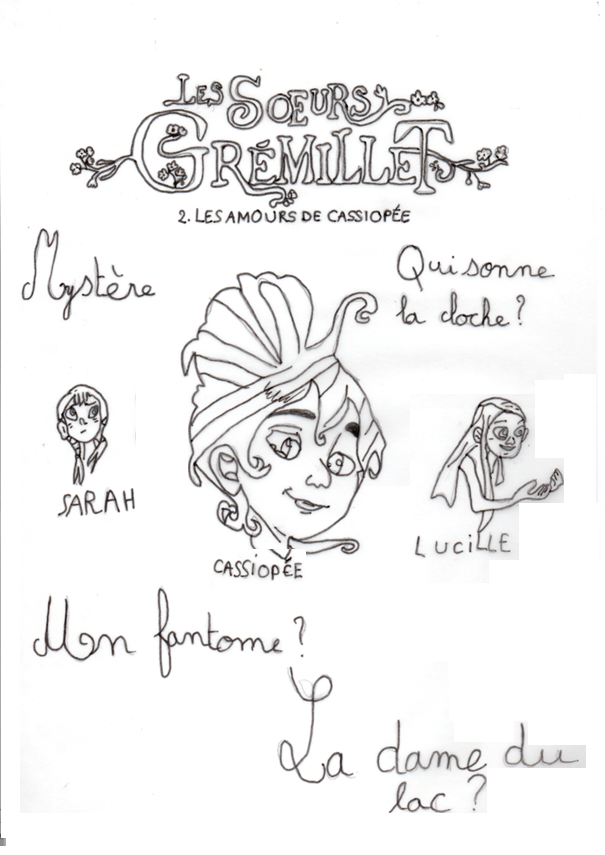 LES SOEURS
GRÉMILLET
2. LES AMOURS DE CASSIOPÉE
Mystère
Qui sonne
la cloche?
SARAH
CASSIOPÉE
LUCiLLE
Un fantome?
La dame du
lac?